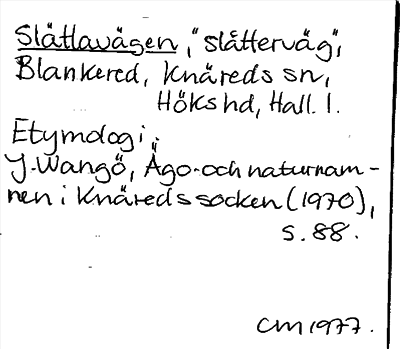 Slåttavägen, "slåtterväg",
Blankered, Knäreds sn,
Höks hd, Hall. l.
Etymologi:
J. Wangö, Ägo- och naturnam-
nen i Knäreds socken (1970),
s. 88.
CM 1977.